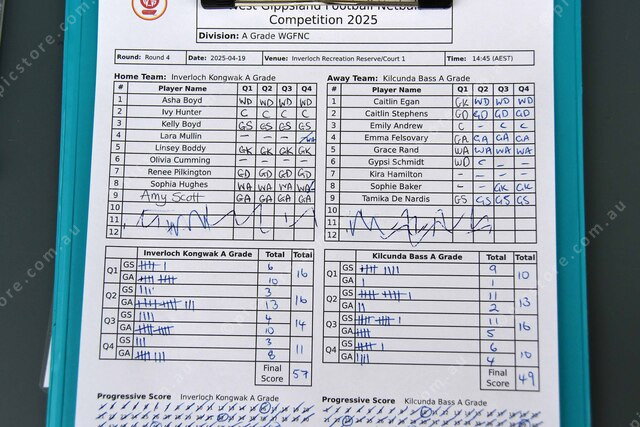 West Gippsland Football Netball
Competition 2025
Division: A Grade WGFNC
Round: Round 4 Date: 2025-04-19 Venue: Inverloch Recreation Reserve/Court 1 Time: 14:45 (AEST)
Home Team: Inverloch Kongwak A Grade
# Player Name Q1 Q2 Q3 Q4
1 Asha Boyd WD WD WD WD
2 Ivy Hunter C C C C
3 Kelly Boyd GS GS GS GS
4 Lara Mullin - - -
5 Linsey Boddy GK GK GK GK
6 Olivia Cumming - - - -
7 Renee Pilkington GD GD GD GD
8 Sophia Hughes WA WA WA WA
9 Amy Scott GA GA GA GA
10
11
12
Away Team: Kilcunda Bass A Grade
# Player Name Q1 Q2 Q3 Q4
1 Caitlin Egan GK WD WD WD
2 Caitlin Stephens GD GD GD GD
3 Emily Andrew C - C C
4 Emma Felsovary GA GA GA GA
5 Grace Rand WA WA WA WA
6 Gypsi Schmidt WD C - -
7 Kira Hamilton - - - -
8 Sophie Baker - - GK GK
9 Tamika De Nardis GS GS GS GS
10
11
12
Inverloch Kongwak A Grade Total Total
Q1 GS 6 16
GA 10
Q2 GS 3 16
GA 13
Q3 GS 4 14
GA 10
Q4 GS 3 11
GA 8
Final Score 57
Kilcunda Bass A Grade Total Total
Q1 GS 9 10
GA 1
Q2 GS 11 13
GA 2
Q3 GS 11 16
GA 5
Q4 GS 6 10
GA 4
Final Score 49
Progressive Score Inverloch Kongwak A Grade
Progressive Score Kilcunda Bass A Grade